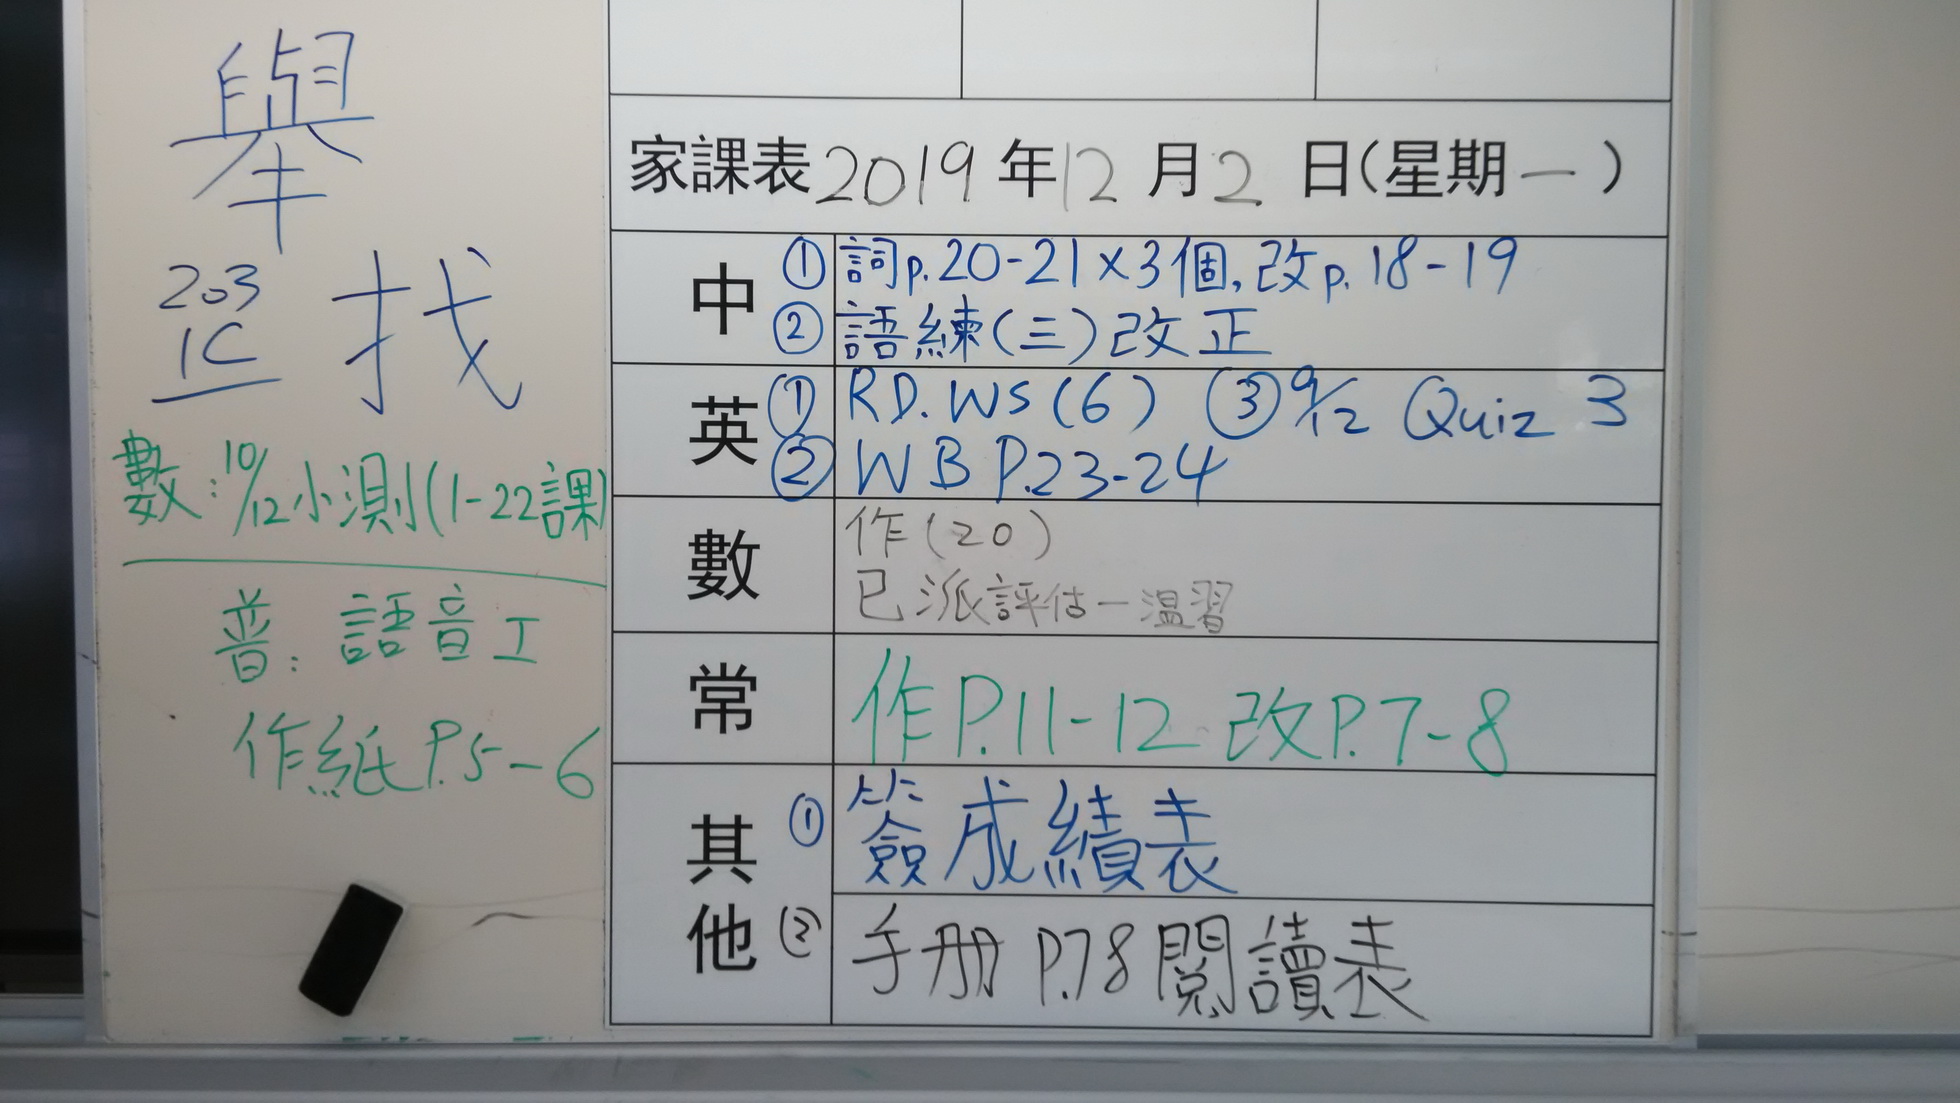 舉
203
1C
找
數：10/12小測(1-22課)
普：語音工
作紙P.5-6
家課表2019年12月2日(星期一)
中
① 詞p.20-21×3個,改p.18-19
② 語練(三)改正
英
① RD.WS(6) ③ 9/12 Quiz 3
② WB P.23-24
數
作(20)
已派評估－溫習
常
作P.11-12 改P.7-8
其他
① 簽成績表
② 手册P.78閱讀表